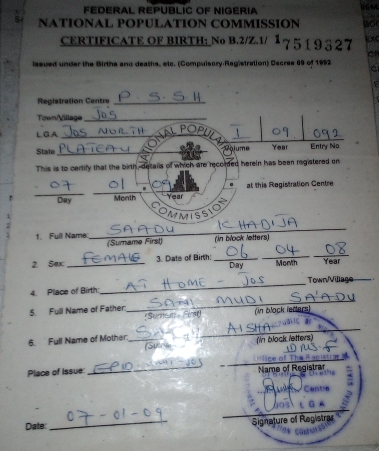 FEDERAL REPUBLIC OF NIGERIA
NATIONAL POPULATION COMMISSION
CERTIFICATE OF BIRTH: No B.2/Z.1/ 17519327
Issued under the Births and deaths, etc. (Compulsory Registration) Decree 69 of 1992
Registration Centre P S.S.H
Town/Village JOS
L.G.A JOS NORTH I 09 092
State PLATEAU Volume Year Entry No
NATIONAL POPULATION COMMISSION
This is to certify that the birth, details of which are recorded herein has been registered on
07 01 09 at this Registration Centre
Day Month Year
1. Full Name: SAADU KHADIJA
(Surname First) (in block letters)
2. Sex: FEMALE 3. Date of Birth: 06 04 08
Day Month Year
4. Place of Birth: AT HOME - JOS Town/Village
5. Full Name of Father: SANI MUDI SA'ADU
(Surname First) (in block letters)
6. Full Name of Mother: AISHA
(in block letters)
Place of Issue: JOS Name of Registrar
Office of The Registrar
Centre
JOS L G A
Date: 07-01-09 Signature of Registrar